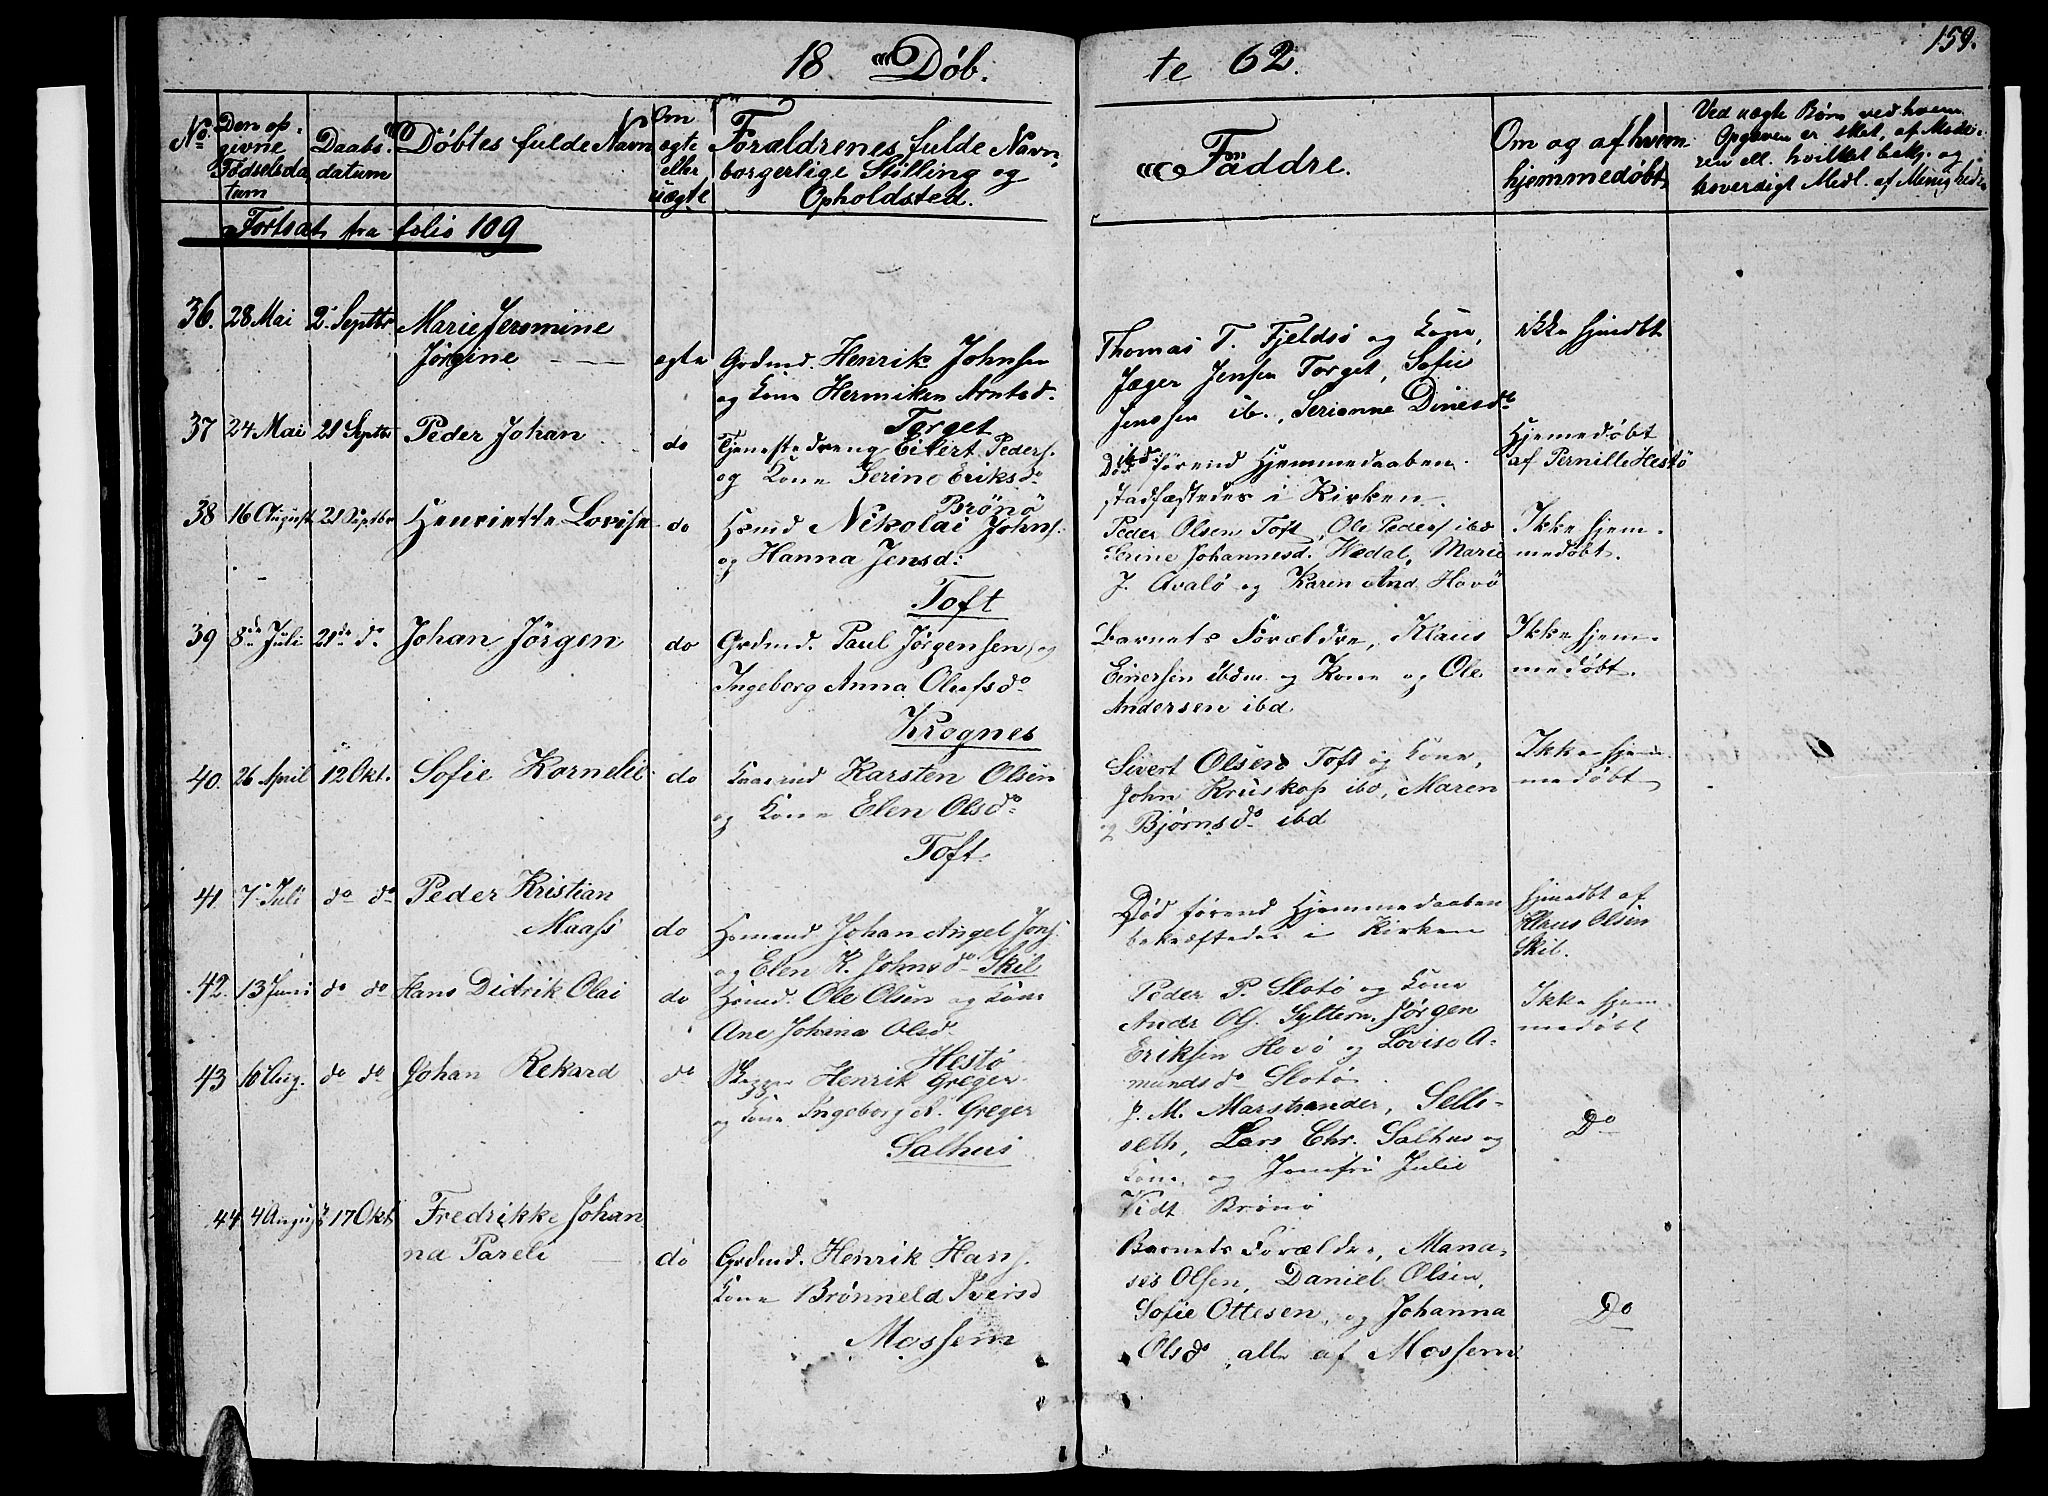 159.
18 Døb.
te 62.
No
Den op-
givne
Fødselsda
tum
Daabs
datum
Døbtes fulde Navn
Om
ægte
eller
uægte
Forældrenes fulde Navn
borgerlige Stilling og
Opholdsted.
Faddre.
Om og af hvem
hjemmedøbt
Ved uægte Børn ved hvem
Opgaven er sket, af Mode-
ren ell. hvilket bekj. og
troverdigt Medl. af Menigheden
Fortsat fra folio 109
36. 28 Mai 2 Septbr Marie Jeromine
Jørgine
ægte Grdmd. Henrik Johnsen
og Kone Hermiken Arntsd.
Torget
Thomas T. Fjeldsø og Kone,
Jæger Jensen Torget, Sofie
Jenssen ib., Serianne Dinesd
ibd
ikke hjmdbt
37 24 Mai 21 Septbr Peder Johan
do Tjenestedreng Eilert Peders.
og Kone Serine Eriksd.
Brønø
Død førend Hjemmedaaben
stadfæstedes i Kirken.
Hjemedøbt
af Pernille Hestø
38 16 August 21 Septbr Henriette Lovise
do Hsmd Nikolai Johns.
og Hanna Jensd:
Toft
Peder Olsen Toft, Ole Peders ibd
Serine Johannesd. Hædal, Marie
J. Avalø og Karen And. Havø
Ikke hjem-
medøbt.
39 8de Juli 21de do Johan Jörgen
do Grdmd. Paul Jørgensen og
Ingeborg Anna Olufsdo
Krognes
Barnets Forældre, Klaus
Einersen ibdm og Kone og Ole
Andersen ibd
Ikke hjem-
medøbt.
40. 26 April 12 Okt. Sofie Kornelie
do Karsten Olsen
og Kone Elen Olsdo
Toft.
Sivert Olsen Toft og Kone,
John Kruskop ibd, Maren
Bjørnsdo ibd
Ikke hjem-
medøbt
41. 7 Juli do do Peder Kristian
Maass
do Hsmand Johan Angel Jons.
og Elen K. Johnsdo Skil
Død førend Hjemmedaaben
bekræftedes i Kirken
hjmdbt af
Klaus Olsen
Skil.
42. 13 Juni do do Hans Didrik Olai
do Hsmd. Ole Olsen og Kone
Ane Johana Olsdo
Hestø
Peder P. Slotø og Kone
Andr Ols. Syltern, Jørgen
Eriksen Hovø og Lovise A-
mundsdo Slotø
Ikke hjem-
medøbt
43 16 Aug. do do Johan Rekard
do Skipper Henrik Greger
og Kone Ingeborg A. Greger
Salhus
J. M. Marstrander, Sells-
seth, Lars Chr. Salhus og
Kone, og Jomfru Julie
Vidt Brønø
Do
44. 4 August 17 Okt Fredrikke Johan
na Pareli
do Grdmd. Henrik Hans.
Kone Brønneld Iversd
Mossem
Barnets Forældre, Mana-
ses Olsen, Daniel Olsen,
Sofie Ottesen, og Johanna
Olsdo, alle af Mossem
Do